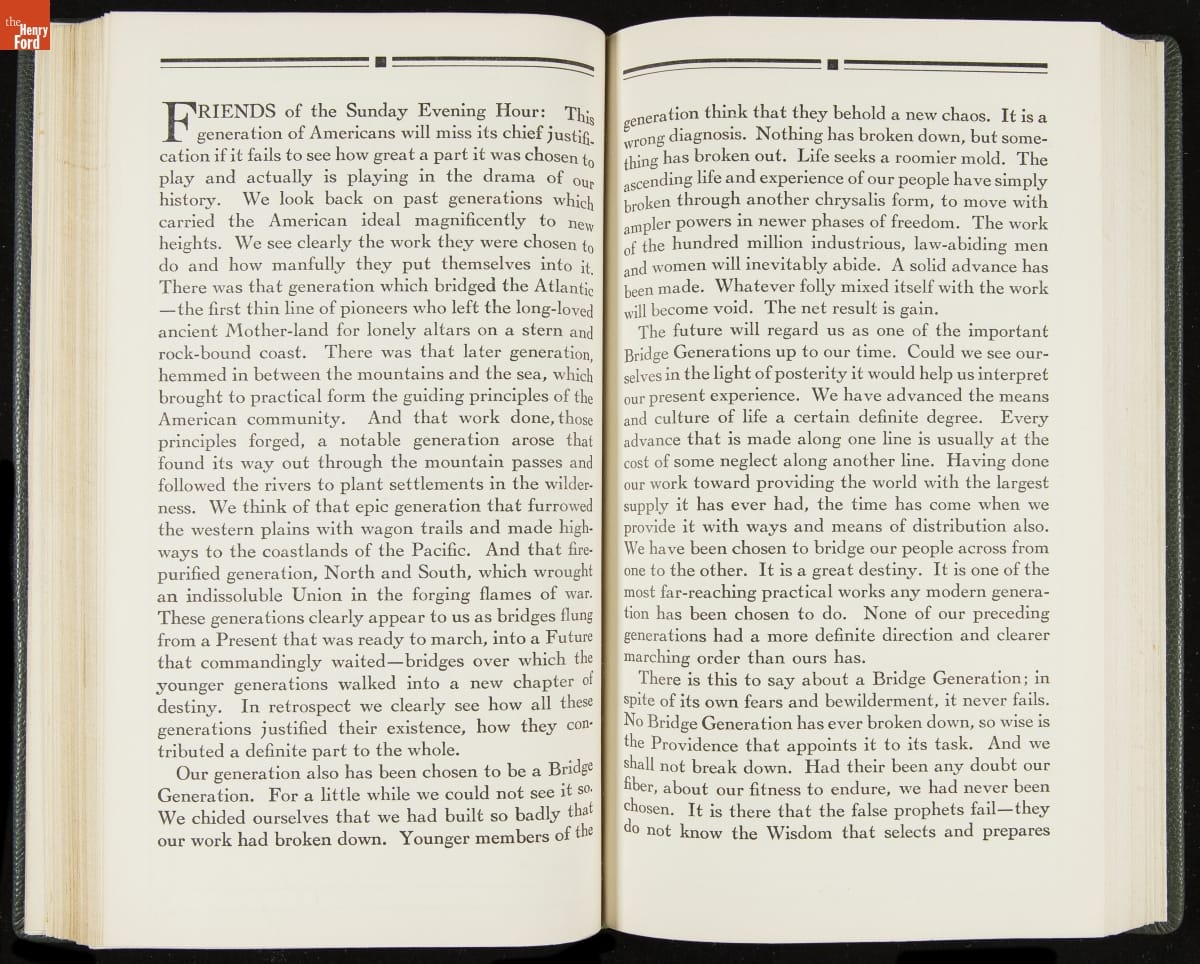 the
Henry
Ford
FRIENDS of the Sunday Evening Hour: This
generation of Americans will miss its chief justifi-
cation if it fails to see how great a part it was chosen to
play and actually is playing in the drama of our
history. We look back on past generations which
carried the American ideal magnificently to new
heights. We see clearly the work they were chosen to
do and how manfully they put themselves into it.
There was that generation which bridged the Atlantic
—the first thin line of pioneers who left the long-loved
ancient Mother-land for lonely altars on a stern and
rock-bound coast. There was that later generation,
hemmed in between the mountains and the sea, which
brought to practical form the guiding principles of the
American community. And that work done, those
principles forged, a notable generation arose that
found its way out through the mountain passes and
followed the rivers to plant settlements in the wilder-
ness. We think of that epic generation that furrowed
the western plains with wagon trails and made high-
ways to the coastlands of the Pacific. And that fire-
purified generation, North and South, which wrought
an indissoluble Union in the forging flames of war.
These generations clearly appear to us as bridges flung
from a Present that was ready to march, into a Future
that commandingly waited—bridges over which the
younger generations walked into a new chapter of
destiny. In retrospect we clearly see how all these
generations justified their existence, how they con-
tributed a definite part to the whole.
Our generation also has been chosen to be a Bridge
Generation. For a little while we could not see it so.
We chided ourselves that we had built so badly that
our work had broken down. Younger members of the
generation think that they behold a new chaos. It is a
wrong diagnosis. Nothing has broken down, but some-
thing has broken out. Life seeks a roomier mold. The
ascending life and experience of our people have simply
broken through another chrysalis form, to move with
ampler powers in newer phases of freedom. The work
of the hundred million industrious, law-abiding men
and women will inevitably abide. A solid advance has
been made. Whatever folly mixed itself with the work
will become void. The net result is gain.
The future will regard us as one of the important
Bridge Generations up to our time. Could we see our-
selves in the light of posterity it would help us interpret
our present experience. We have advanced the means
and culture of life a certain definite degree. Every
advance that is made along one line is usually at the
cost of some neglect along another line. Having done
our work toward providing the world with the largest
supply it has ever had, the time has come when we
provide it with ways and means of distribution also.
We have been chosen to bridge our people across from
one to the other. It is a great destiny. It is one of the
most far-reaching practical works any modern genera-
tion has been chosen to do. None of our preceding
generations had a more definite direction and clearer
marching order than ours has.
There is this to say about a Bridge Generation; in
spite of its own fears and bewilderment, it never fails.
No Bridge Generation has ever broken down, so wise is
the Providence that appoints it to its task. And we
shall not break down. Had their been any doubt our
fiber, about our fitness to endure, we had never been
chosen. It is there that the false prophets fail—they
do not know the Wisdom that selects and prepares